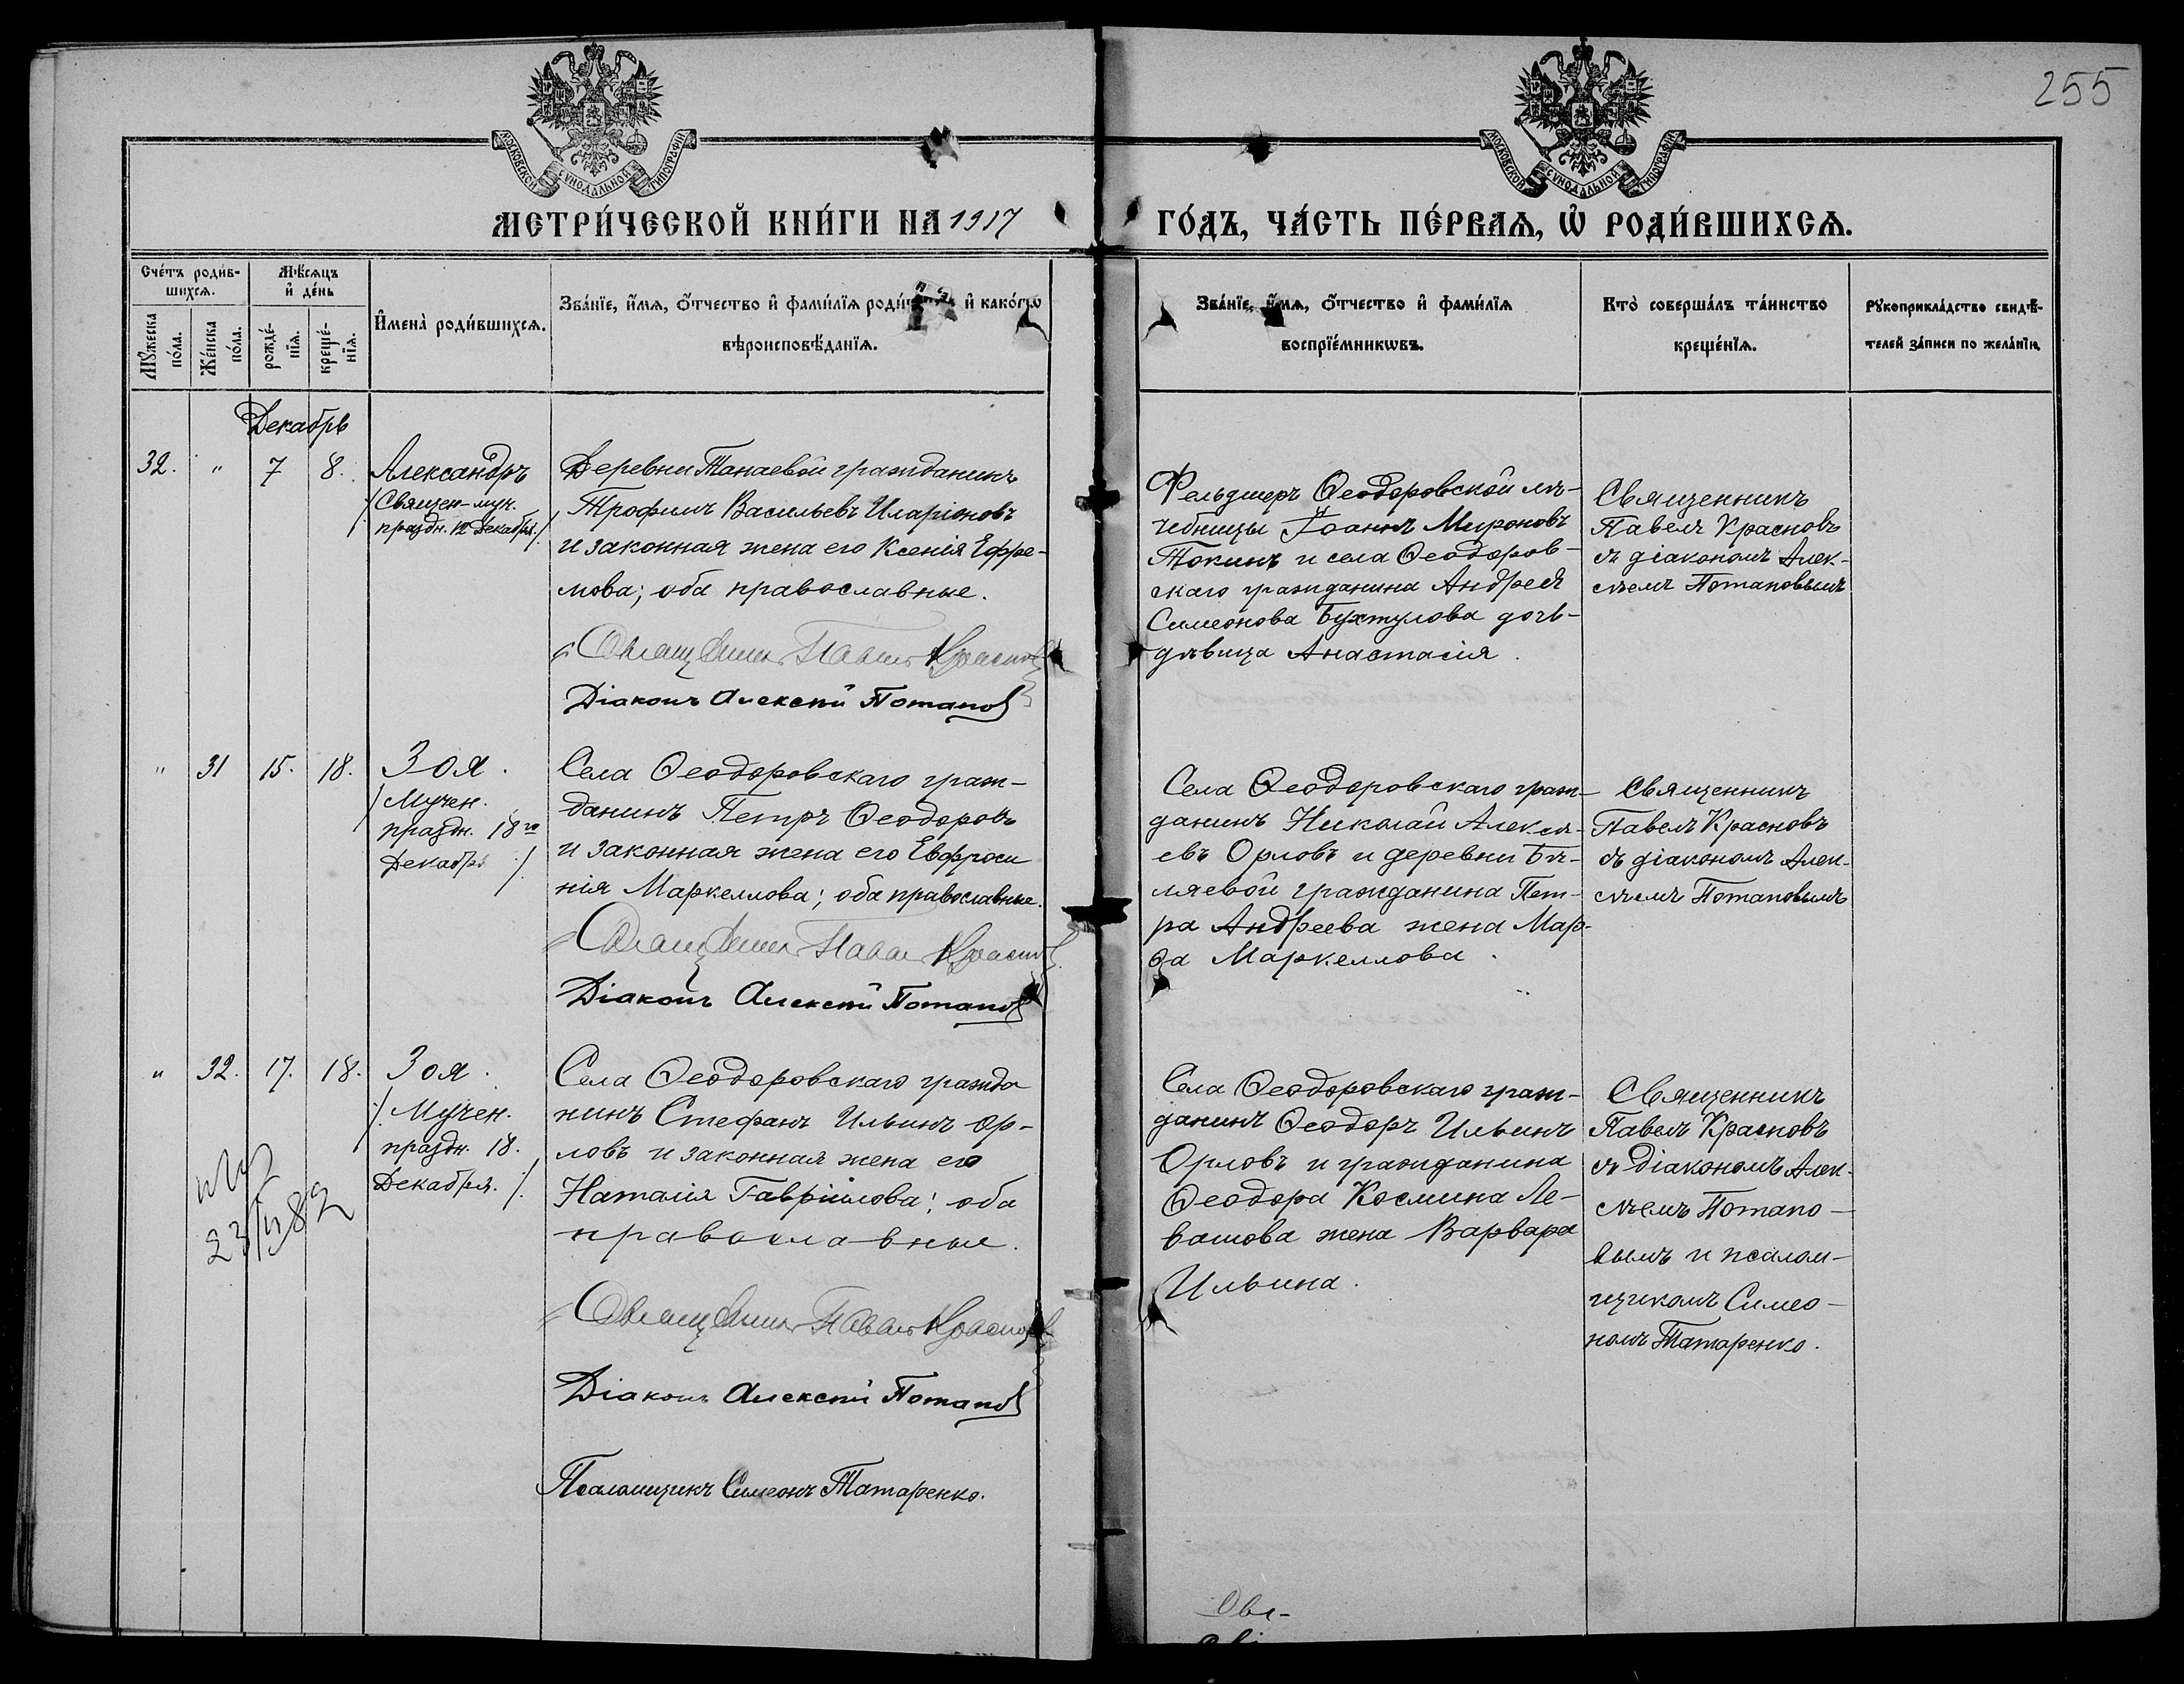 255
МОСКОВСКОЙ СѴНОДАЛЬНОЙ ТИПОГРАФІИ
МОСКОВСКОЙ СѴНОДАЛЬНОЙ ТИПОГРАФІИ
МЕТРИ́ЧЕСКОЙ КНИ́ГИ НА 1917
ГО́ДЪ, ЧА́СТЬ ПЕ́РВАѦ, Ѡ҆ РОДИ́ВШИХСѦ.
Сче́тъ роди́в-
шихсѧ.
Мѣ́сѧцъ
и҆ де́нь
Мꙋ́жеска
по́ла.
Же́нска
по́ла.
рожде́-
нїѧ.
креще́-
нїѧ.
И҆мена̀ роди́вшихсѧ.
Зва́нїе, и҆́мѧ, ѻ҆́тчество и҆ фами́лїѧ и҆ како́гѡ
вѣроисповѣ́данїѧ.
Зва́нїе, и҆́мѧ, ѻ҆́тчество и҆ фами́лїѧ
воспрїе́мникѡвъ.
Кто̀ соверша́лъ та́инство
креще́нїѧ.
Рꙋкоприкла́дство свидѣ́-
телей за́писи по жела́нїю.
Декабрь
32. " 7 8. Александръ
/Священ-муч.
праздн. 12 Декабря./
Деревни Танаевой гражданинъ
Трофимъ Васильевъ Иларіоновъ
и законная жена его Ксенія Ефре-
мова; оба православные.
Священникъ Павелъ Красновъ
Діаконъ Алексѣй Потаповъ
Фельдшеръ Ѳеодоровской лѣ-
чебницы Іоаннъ Мироновъ
Токинъ и села Ѳеодоров-
скаго гражданина Андрея
Симеонова Бухтулова дочь-
дѣвица Анастасія.
Священникъ
Павелъ Красновъ
съ діакономъ Алек-
сѣемъ Потаповымъ
" 31 15. 18. Зоя.
/Мучен.
праздн. 18го
Декабря /
Села Ѳеодоровскаго граж-
данинъ Петръ Ѳеодоровъ
и законная жена его Евфроси
нія Маркеллова; оба православные.
Священникъ Павелъ Красновъ
Діаконъ Алексѣй Потаповъ
Села Ѳеодоровскаго граж-
данинъ Николай Алексѣ-
евъ Орловъ и деревни Бѣ-
ляевой гражданина Пет-
ра Андреева жена Мар-
ѳа Маркеллова.
Священникъ
Павелъ Красновъ
съ діакономъ Алек-
сѣемъ Потаповымъ
" 32. 17. 18. Зоя.
/Мучен.
праздн. 18.
Декабря. /
Села Ѳеодоровскаго гражда
нинъ Стефанъ Ильинъ Ор-
ловъ и законная жена его
Наталія Гавріилова; оба
православные.
Священникъ Павелъ Красновъ
Діаконъ Алексѣй Потаповъ
Псаломщикъ Симеонъ Татаренко.
Села Ѳеодоровскаго граж-
данинъ Ѳеодоръ Ильинъ
Орловъ и гражданина
Ѳеодора Космина Ле-
вашова жена Варвара
Ильина.
Священникъ
Павелъ Красновъ
съ діакономъ Алек-
сѣемъ Потапо-
вымъ и псалом-
щикомъ Симео-
номъ Татаренко.